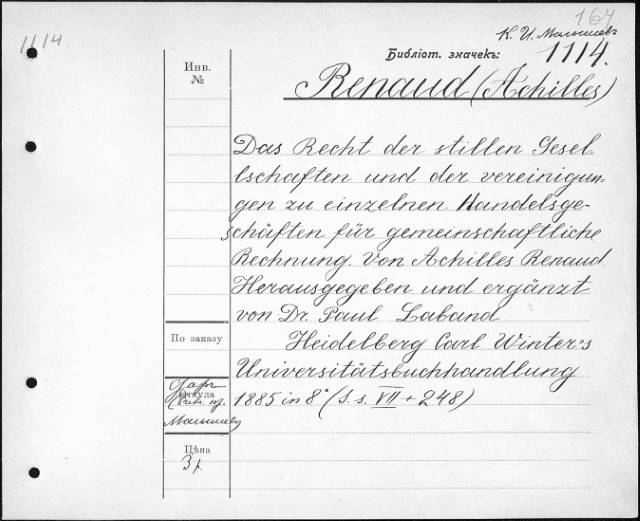 164
1114.
К. И. Малышевъ
Библіот. значекъ:
1114.
Инв.
№
Renaud (Achilles)
Das Recht der stillen Gesel-
lschaften und der vereinigun-
gen zu einzelnen Handelsge-
schäften für gemeinschaftliche
Rechnung. Von Achilles Renaud
Herausgegeben und ergänzt
von Dr. Paul Laband
По заказу
Heidelberg Carl Winter's
Universitätsbuchhandlung
Откуда
Малышевъ
1885 in 8° (S. s. VII + 248)
Цѣна
3 р.